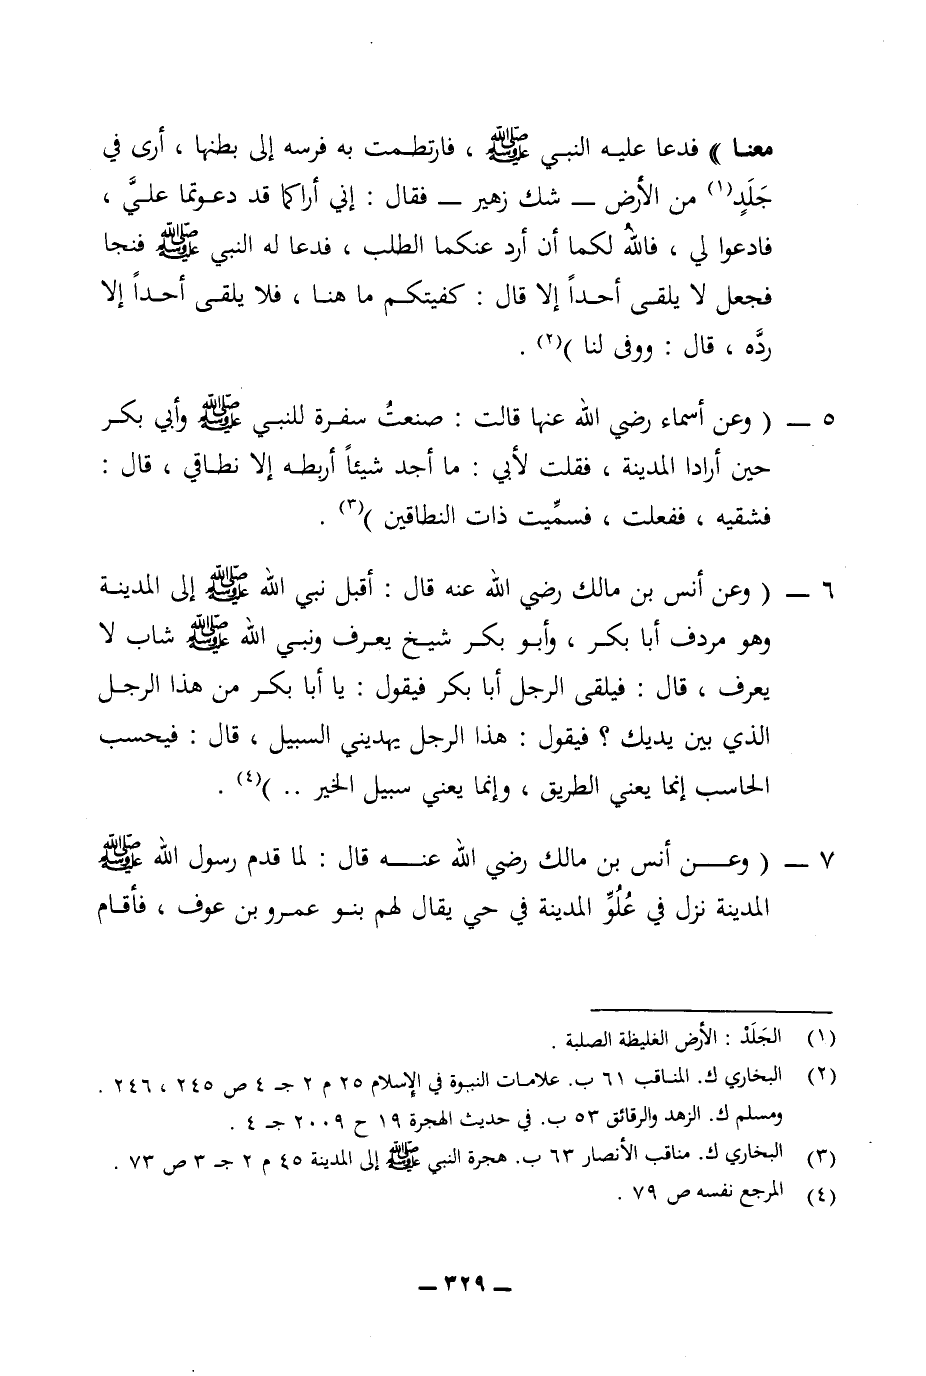 معنا ﴾ فدعا عليه النبي ﷺ ، فارتطمت به فرسه إلى بطنها ، أرى في
جَلَدٍ(١) من الأرض – شك زهير – فقال : إني أراكما قد دعوتما عليَّ ،
فادعوا لي ، فاللهُ لكما أن أرد عنكما الطلب ، فدعا له النبي ﷺ فنجا
فجعل لا يلقى أحداً إلا قال : كفيتكم ما هنا ، فلا يلقى أحداً إلا
ردَّه ، قال : ووفى لنا )(٢) .
٥ – ( وعن أسماء رضي الله عنها قالت : صنعتُ سفرة للنبي ﷺ وأبي بكر
حين أرادا المدينة ، فقلت لأبي : ما أجد شيئاً أربطه إلا نطاقي ، قال :
فشقيه ، ففعلت ، فسمِّيت ذات النطاقين )(٣) .
٦ – ( وعن أنس بن مالك رضي الله عنه قال : أقبل نبي الله ﷺ إلى المدينة
وهو مردف أبا بكر ، وأبو بكر شيخ يعرف ونبي الله ﷺ شاب لا
يعرف ، قال : فيلقى الرجل أبا بكر فيقول : يا أبا بكر من هذا الرجل
الذي بين يديك ؟ فيقول : هذا الرجل يهديني السبيل ، قال : فيحسب
الحاسب إنما يعني الطريق ، وإنما يعني سبيل الخير .. )(٤) .
٧ – ( وعن أنس بن مالك رضي الله عنه قال : لما قدم رسول الله ﷺ
المدينة نزل في عُلُوِّ المدينة في حي يقال لهم بنو عمرو بن عوف ، فأقام
(١) الجَلَدْ : الأرض الغليظة الصلبة .
(٢) البخاري ك. المناقب ٦١ ب. علامات النبوة في الإسلام ٢٥ م ٢ جـ ٤ ص ٢٤٥ ، ٢٤٦ .
ومسلم ك. الزهد والرقائق ٥٣ ب. في حديث الهجرة ١٩ ح ٢٠٠٩ جـ ٤ .
(٣) البخاري ك. مناقب الأنصار ٦٣ ب. هجرة النبي ﷺ إلى المدينة ٤٥ م ٢ جـ ٣ ص ٧٣ .
(٤) المرجع نفسه ص ٧٩ .
– ٣٢٩ –